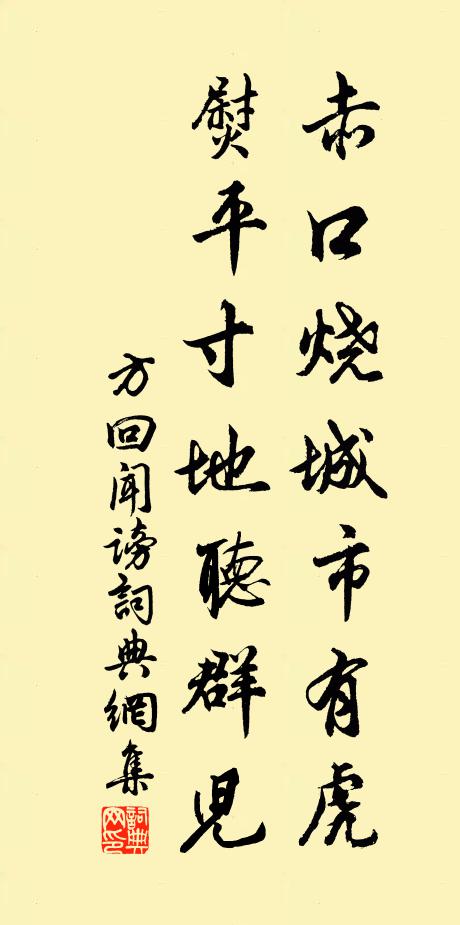 赤口烧城市有虎
熨平寸地聽群児
方回聞謗詞典網集
詞典
网印